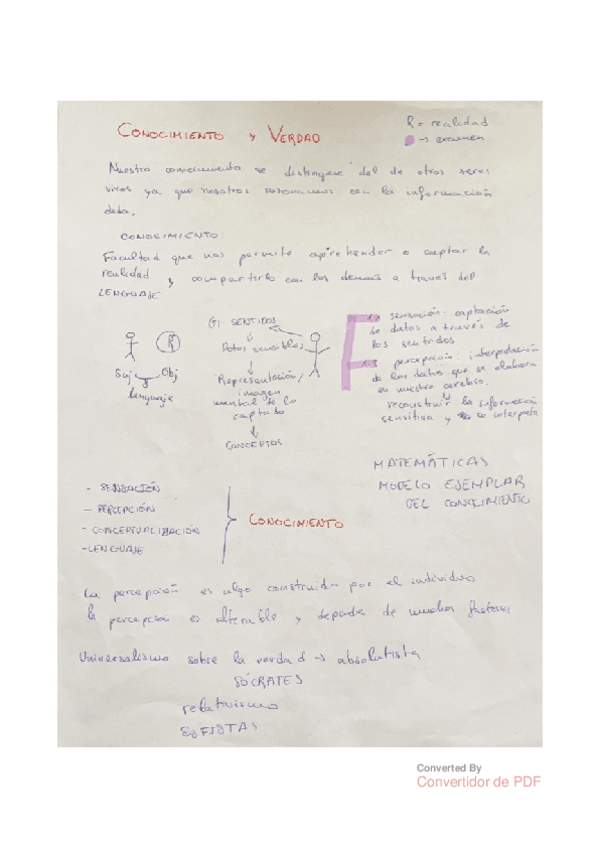 CONOCIMIENTO Y VERDAD
R = realidad
→ examen
Nuestro conocimiento se distingue del de otros seres
vivos ya que nosotros razonamos con la información
dada.
CONOCIMIENTO:
Facultad que nos permite aprehender o captar la
realidad y compartirlo con los demás a través del
LENGUAJE
SENTIDOS
Datos sensibles
Representación/
imagen
mental de lo
captado
CONCEPTOS
R
Suj Obj
lenguaje
sensación: captación
de datos a través de
los sentidos
percepción: interpretación
de los datos que se elabora
en nuestro cerebro.
reconstruir la información
sensitiva y se interpeta
MATEMÁTICAS
MODELO EJEMPLAR
DEL CONOCIMIENTO
- SENSACIÓN
- PERCEPCIÓN
- CONCEPTUALIZACIÓN
- LENGUAJE
CONOCIMIENTO
La percepción es algo construido por el individuo
la percepción es alterable y depende de muchos factores
Universalismo sobre la verdad → absolutista
SÓCRATES
relativismo
SOFISTAS
Converted By
Convertidor de PDF